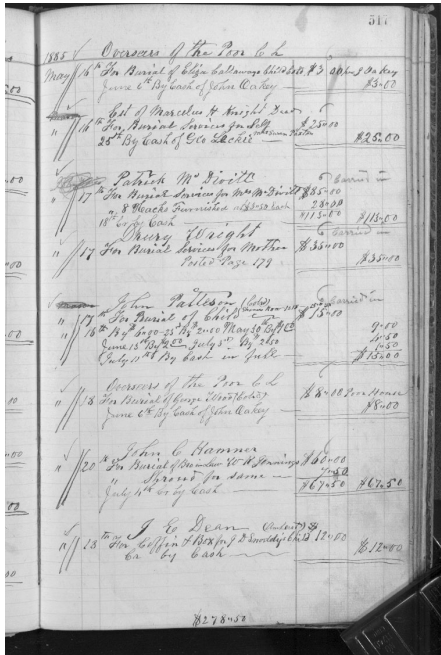 517
1885 Overseers of the Poor C L
May 16th For Burial of Eliza Child $3.00 J Oakey
June 6th By Cash of John Oakey $3.00
Est of Marcelus H Knight Decd
" 16th For Burial Services for Self $25.00
25th By Cash of Geo $25.00
Patrick McDivitt Carried in
" 17th For Burial Services for Mrs McDivitt $85.00
" 8 Hacks Furnished at $3.50 Each 28.00
18th Cr by Cash $113.00 $113.00
Drury Wright Carried in
" 17 For Burial Services for Mother $35.00
Posted Page 179 $35.00
John Patterson (Cold) Carried in
" 17th For Burial of Child $15.00
18th By 6.00 25th By 2.00 May 30 By 9.00
June 13th By 2.00 July 3rd By 2.50 4.50
July 11th By Cash in full $15.00
Overseers of the Poor C L
" 18 For Burial of George (Cold) $8.00 Poor House
June 6th By Cash of John Oakey $8.00
John C Hamner
" 20th For Burial of W H Jennings $60.00
" Shroud for same 7.50
July 4th Cr by Cash $67.50 $67.50
J E Dean
" 18th For Coffin & Box for J D Child 12.00
Cr by Cash $12.00
$278.50